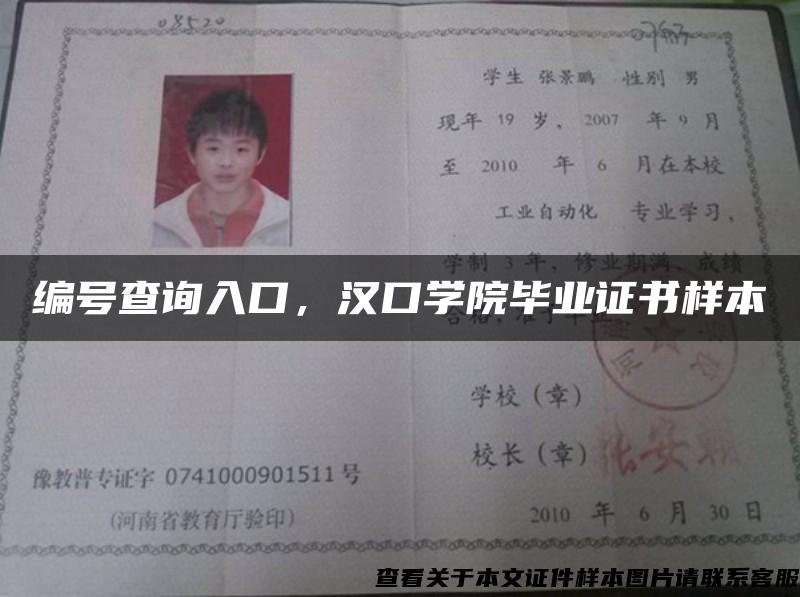 08520
学生 张景鹏 性别 男
现年 19 岁，2007 年 9 月
至 2010 年 6 月在本校
工业自动化 专业学习，
学制 3 年，修业期满，成绩
编号查询入口，汉口学院毕业证书样本
合格，准予毕业
学校（章）
校长（章）
豫教普专证字 0741000901511 号
（河南省教育厅验印）
2010 年 6 月 30 日
查看关于本文证件样本图片请联系客服